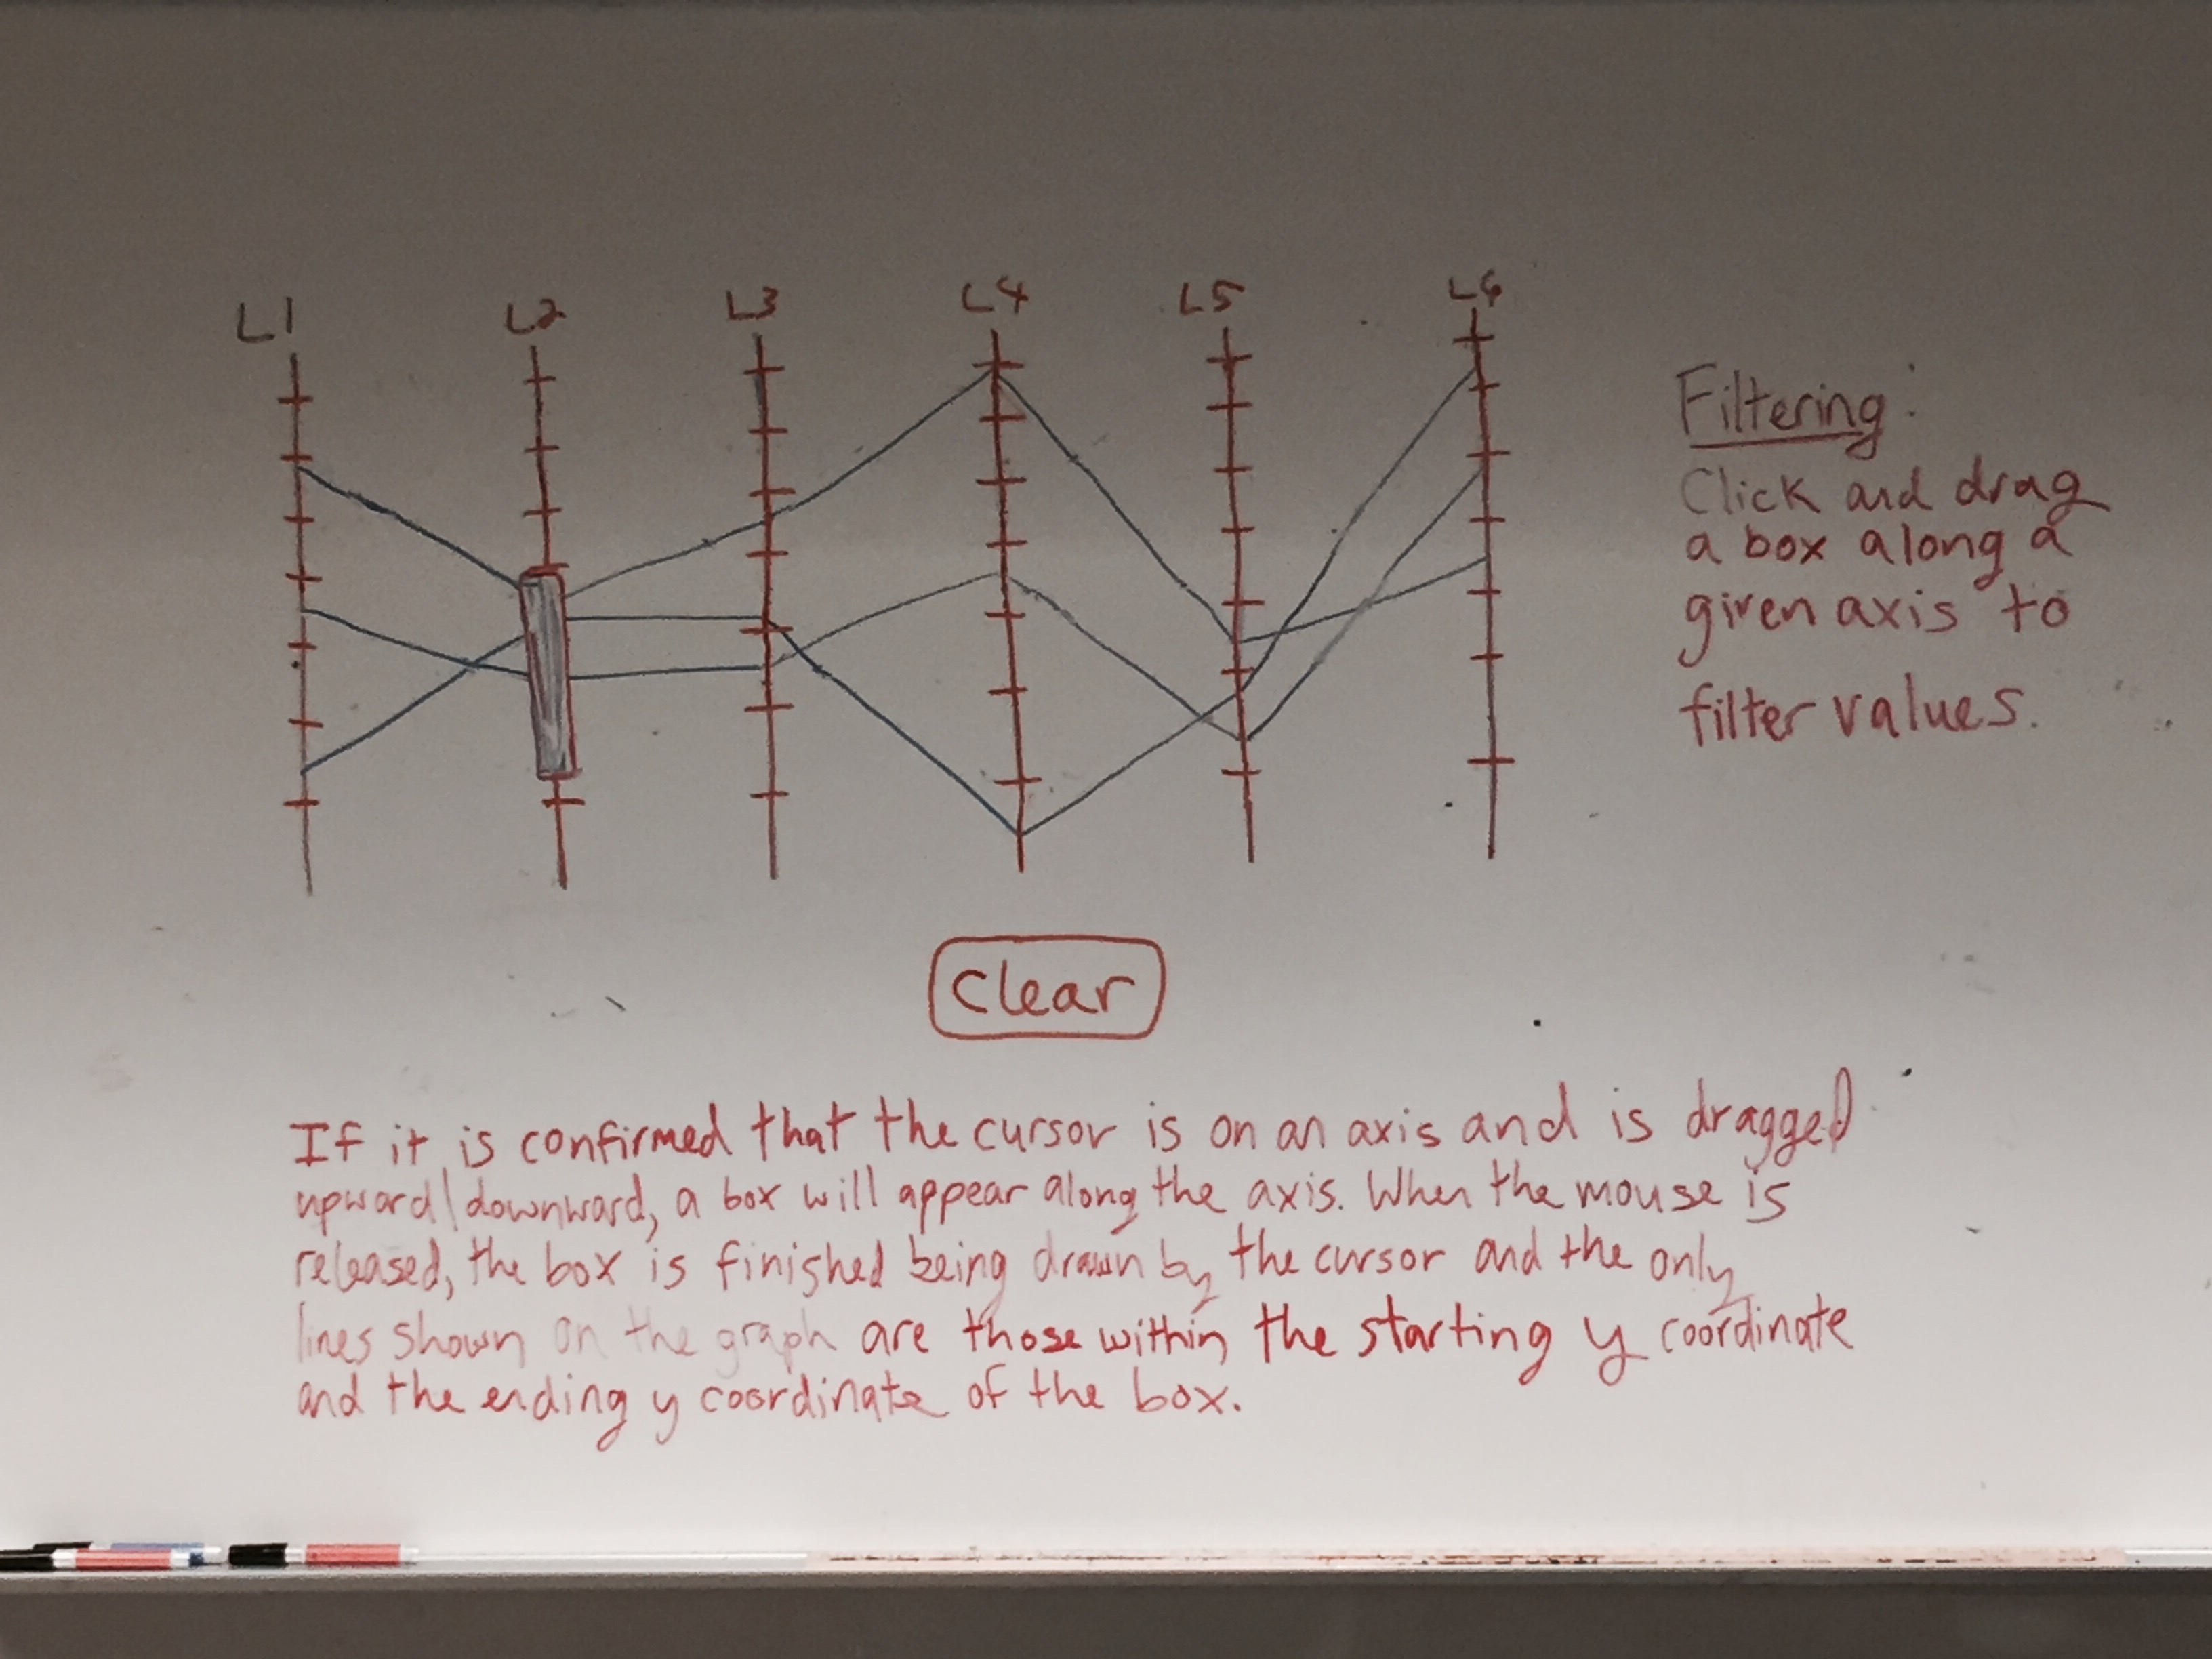 L1 L2 L3 L4 L5 L6
Filtering:
Click and drag
a box along a
given axis to
filter values.
Clear
If it is confirmed that the cursor is on an axis and is dragged
upward/downward, a box will appear along the axis. When the mouse is
released, the box is finished being drawn by the cursor and the only
lines shown on the graph are those within the starting y coordinate
and the ending y coordinate of the box.